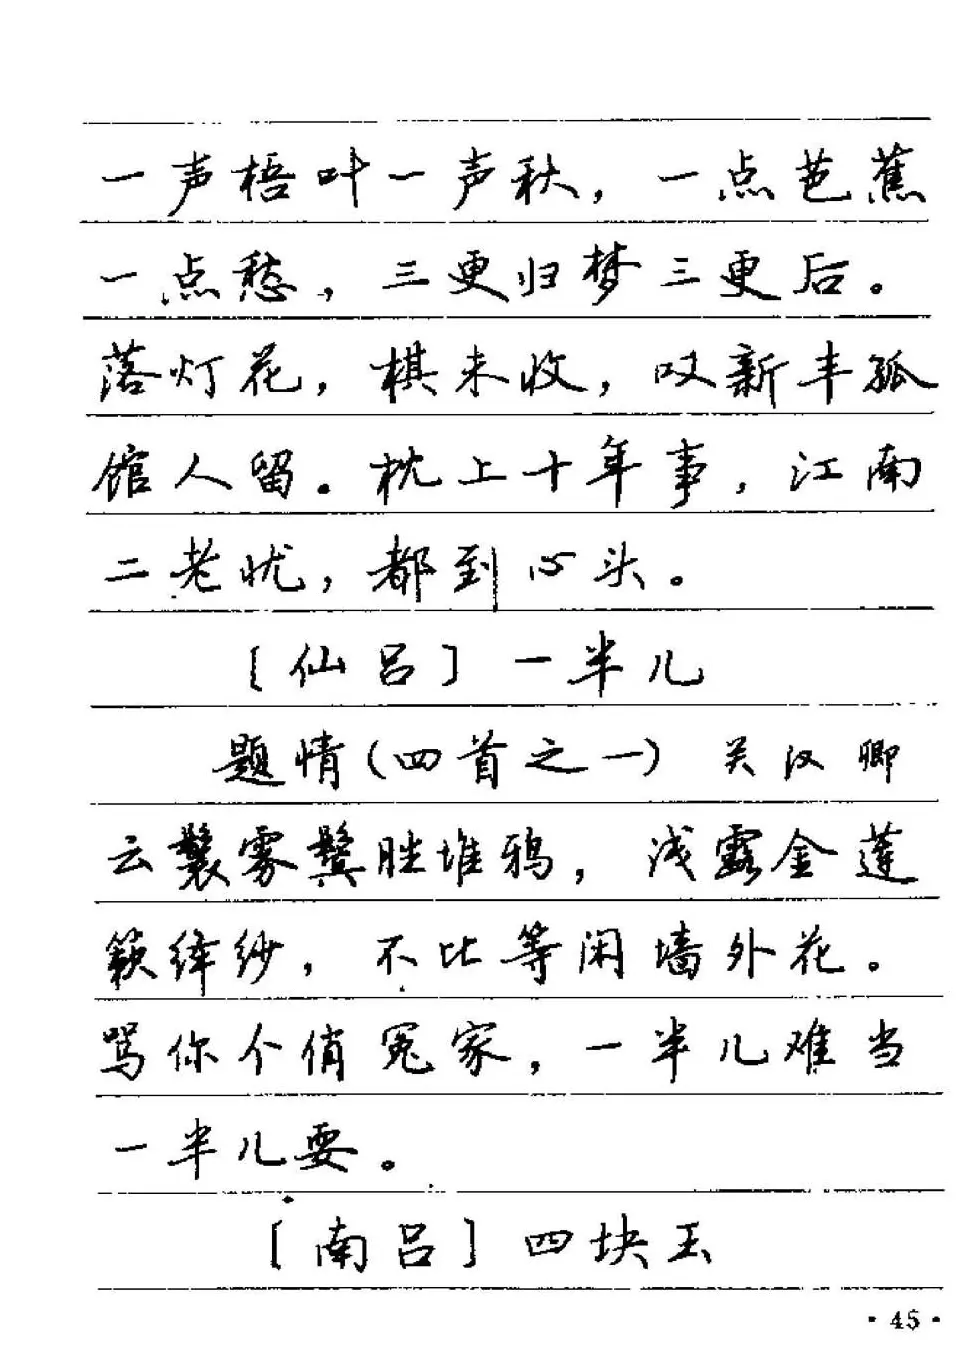 一声梧叶一声秋，一点芭蕉
一点愁，三更归梦三更后。
落灯花，棋未收，叹新丰孤
馆人留。枕上十年事，江南
二老忧，都到心头。
［仙吕］一半儿
题情(四首之一) 关汉卿
云鬟雾鬓胜堆鸦，浅露金莲
簌绛纱，不比等闲墙外花。
骂你个俏冤家，一半儿难当
一半儿耍。
［南吕］四块玉
·45·